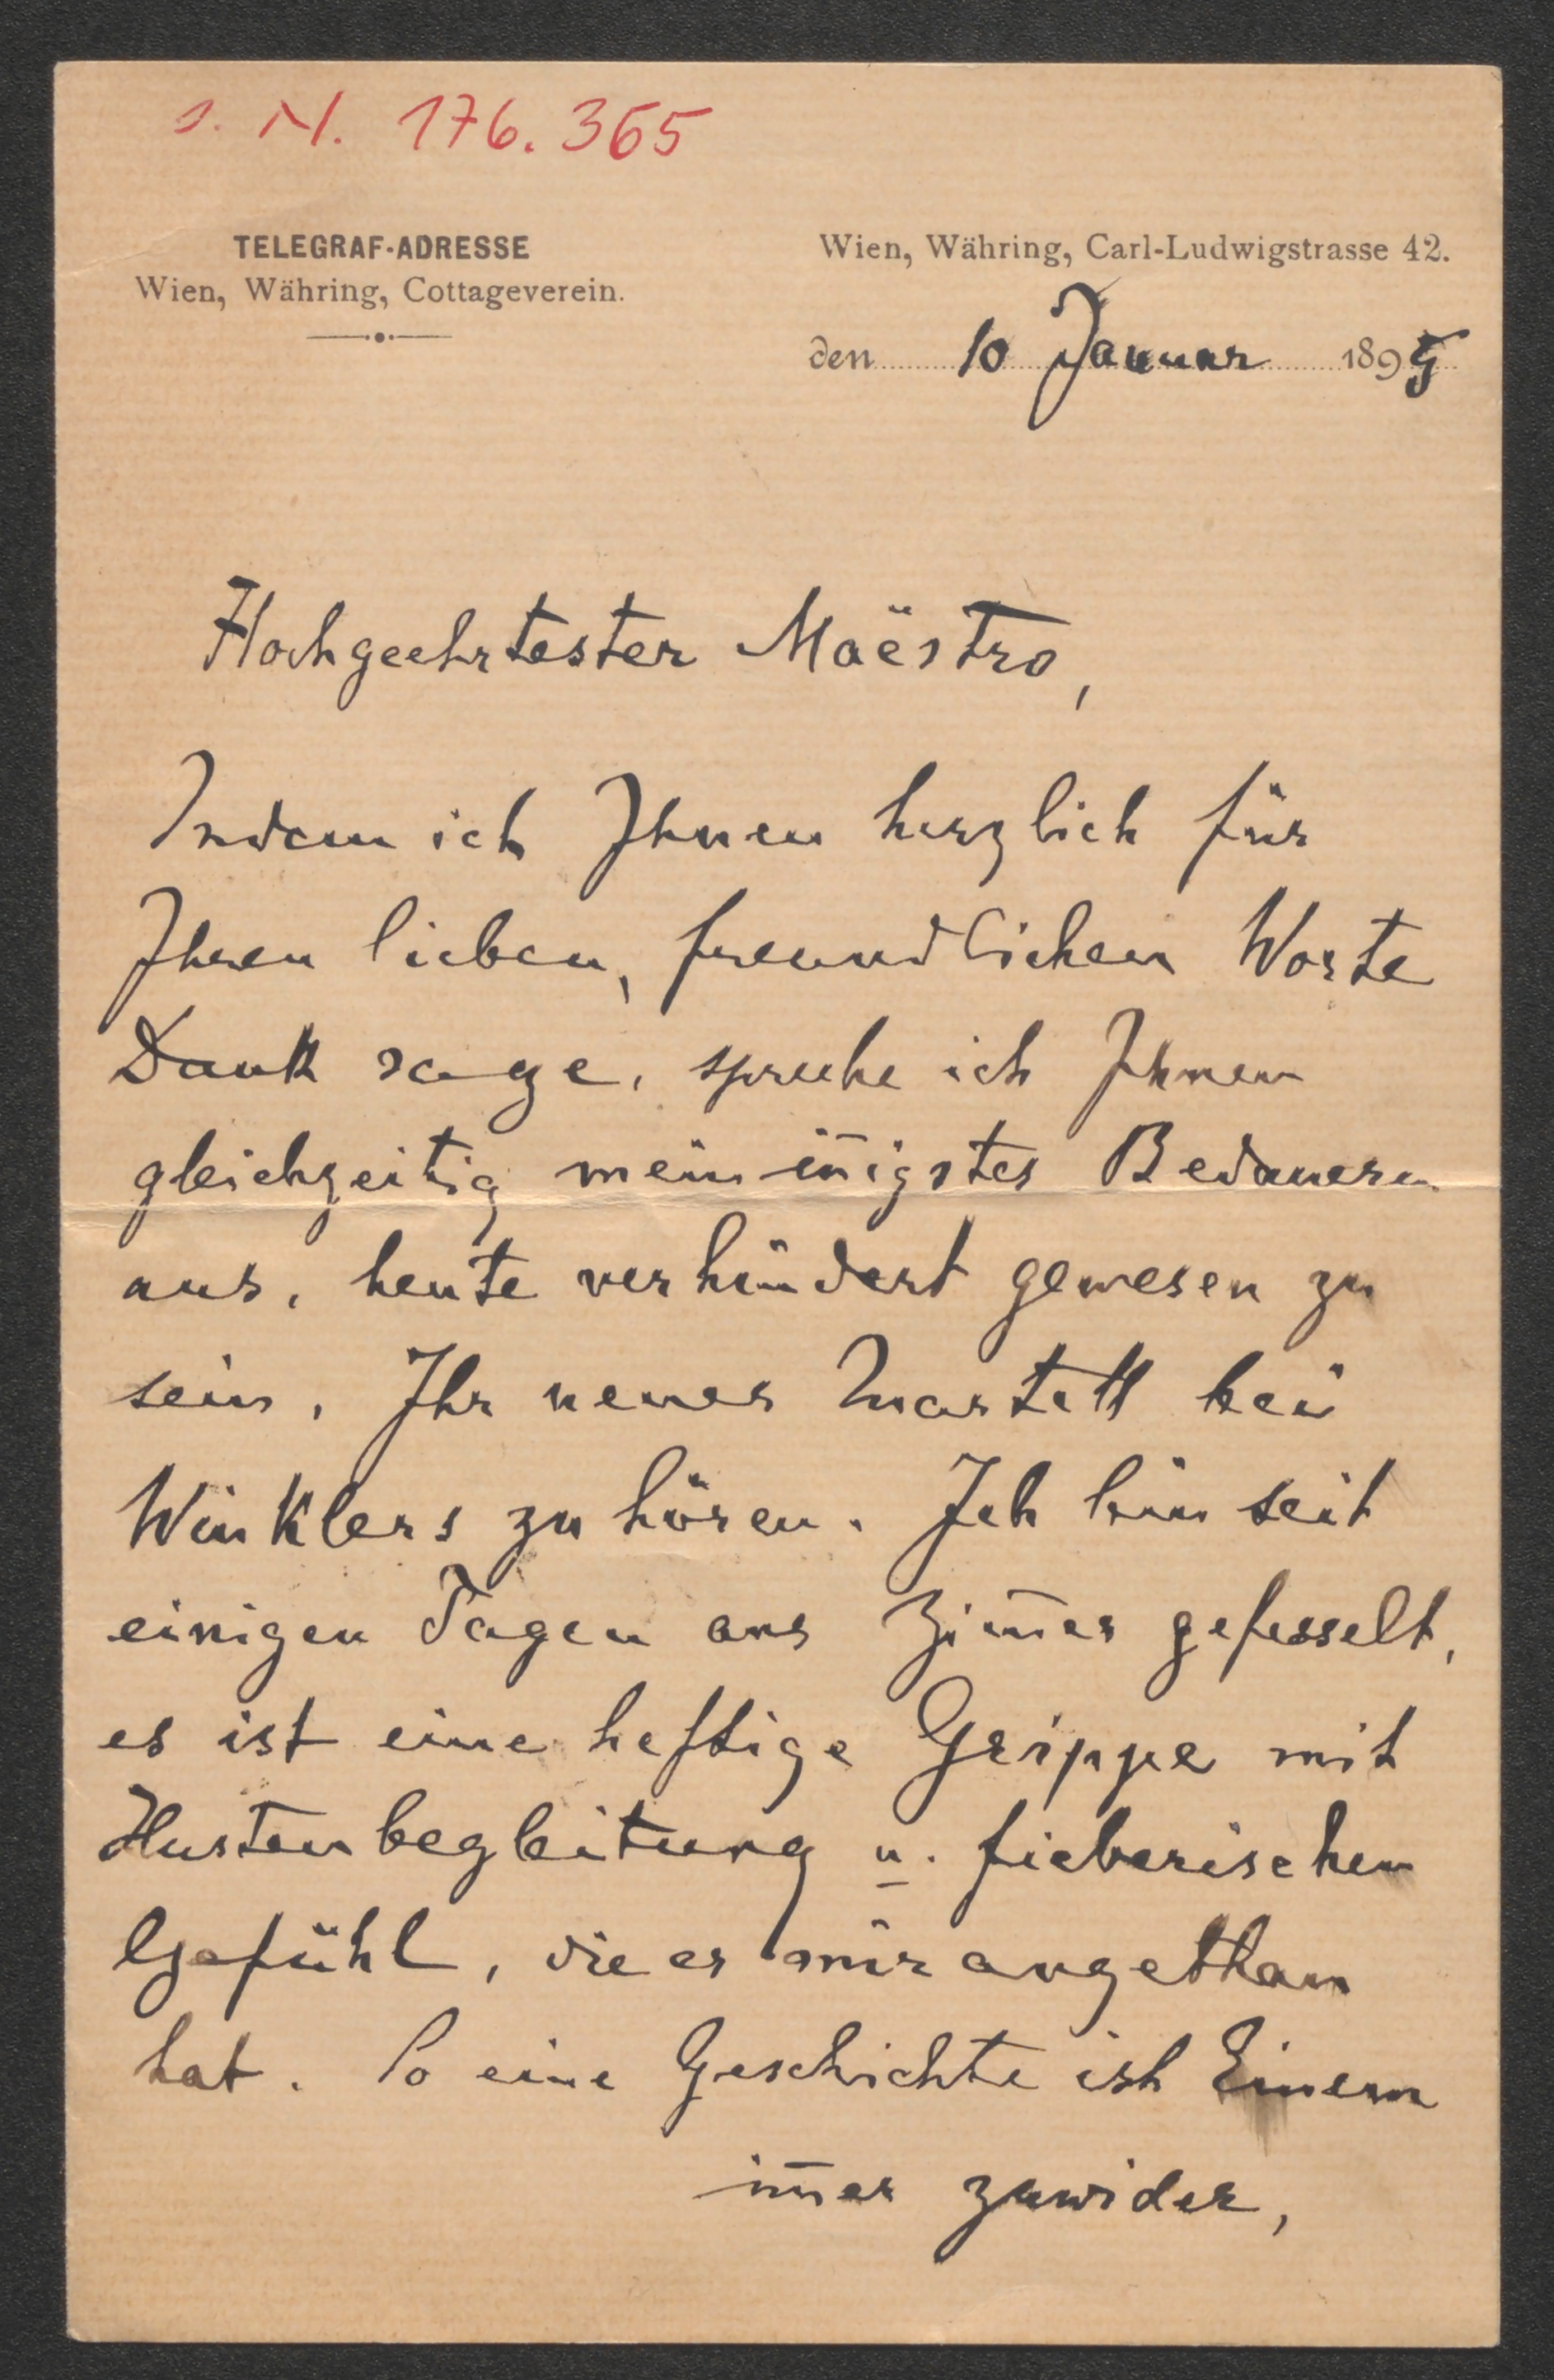 I. N. 176.365
TELEGRAF-ADRESSE
Wien, Währing, Cottageverein.
Wien, Währing, Carl-Ludwigstrasse 42.
den 10 Januar 1895
Hochgeehrtester Maëstro,
Indem ich Ihnen herzlich für
Ihren lieben, freundlichen Worte
Dank sage, spreche ich Ihnen
gleichzeitig mein iñigstes Bedauern
aus, heute verhindert gewesen zu
sein, Ihr neues Quartett bei
Winklers zu hören. Ich bin seit
einigen Tagen ans Zim̄er gefesselt,
es ist eine heftige Grippe mit
Hustenbegleitung u. fieberischem
Gefühl, die es mir angethan
hat. So eine Geschichte ist Einem
im̄er zuwider,